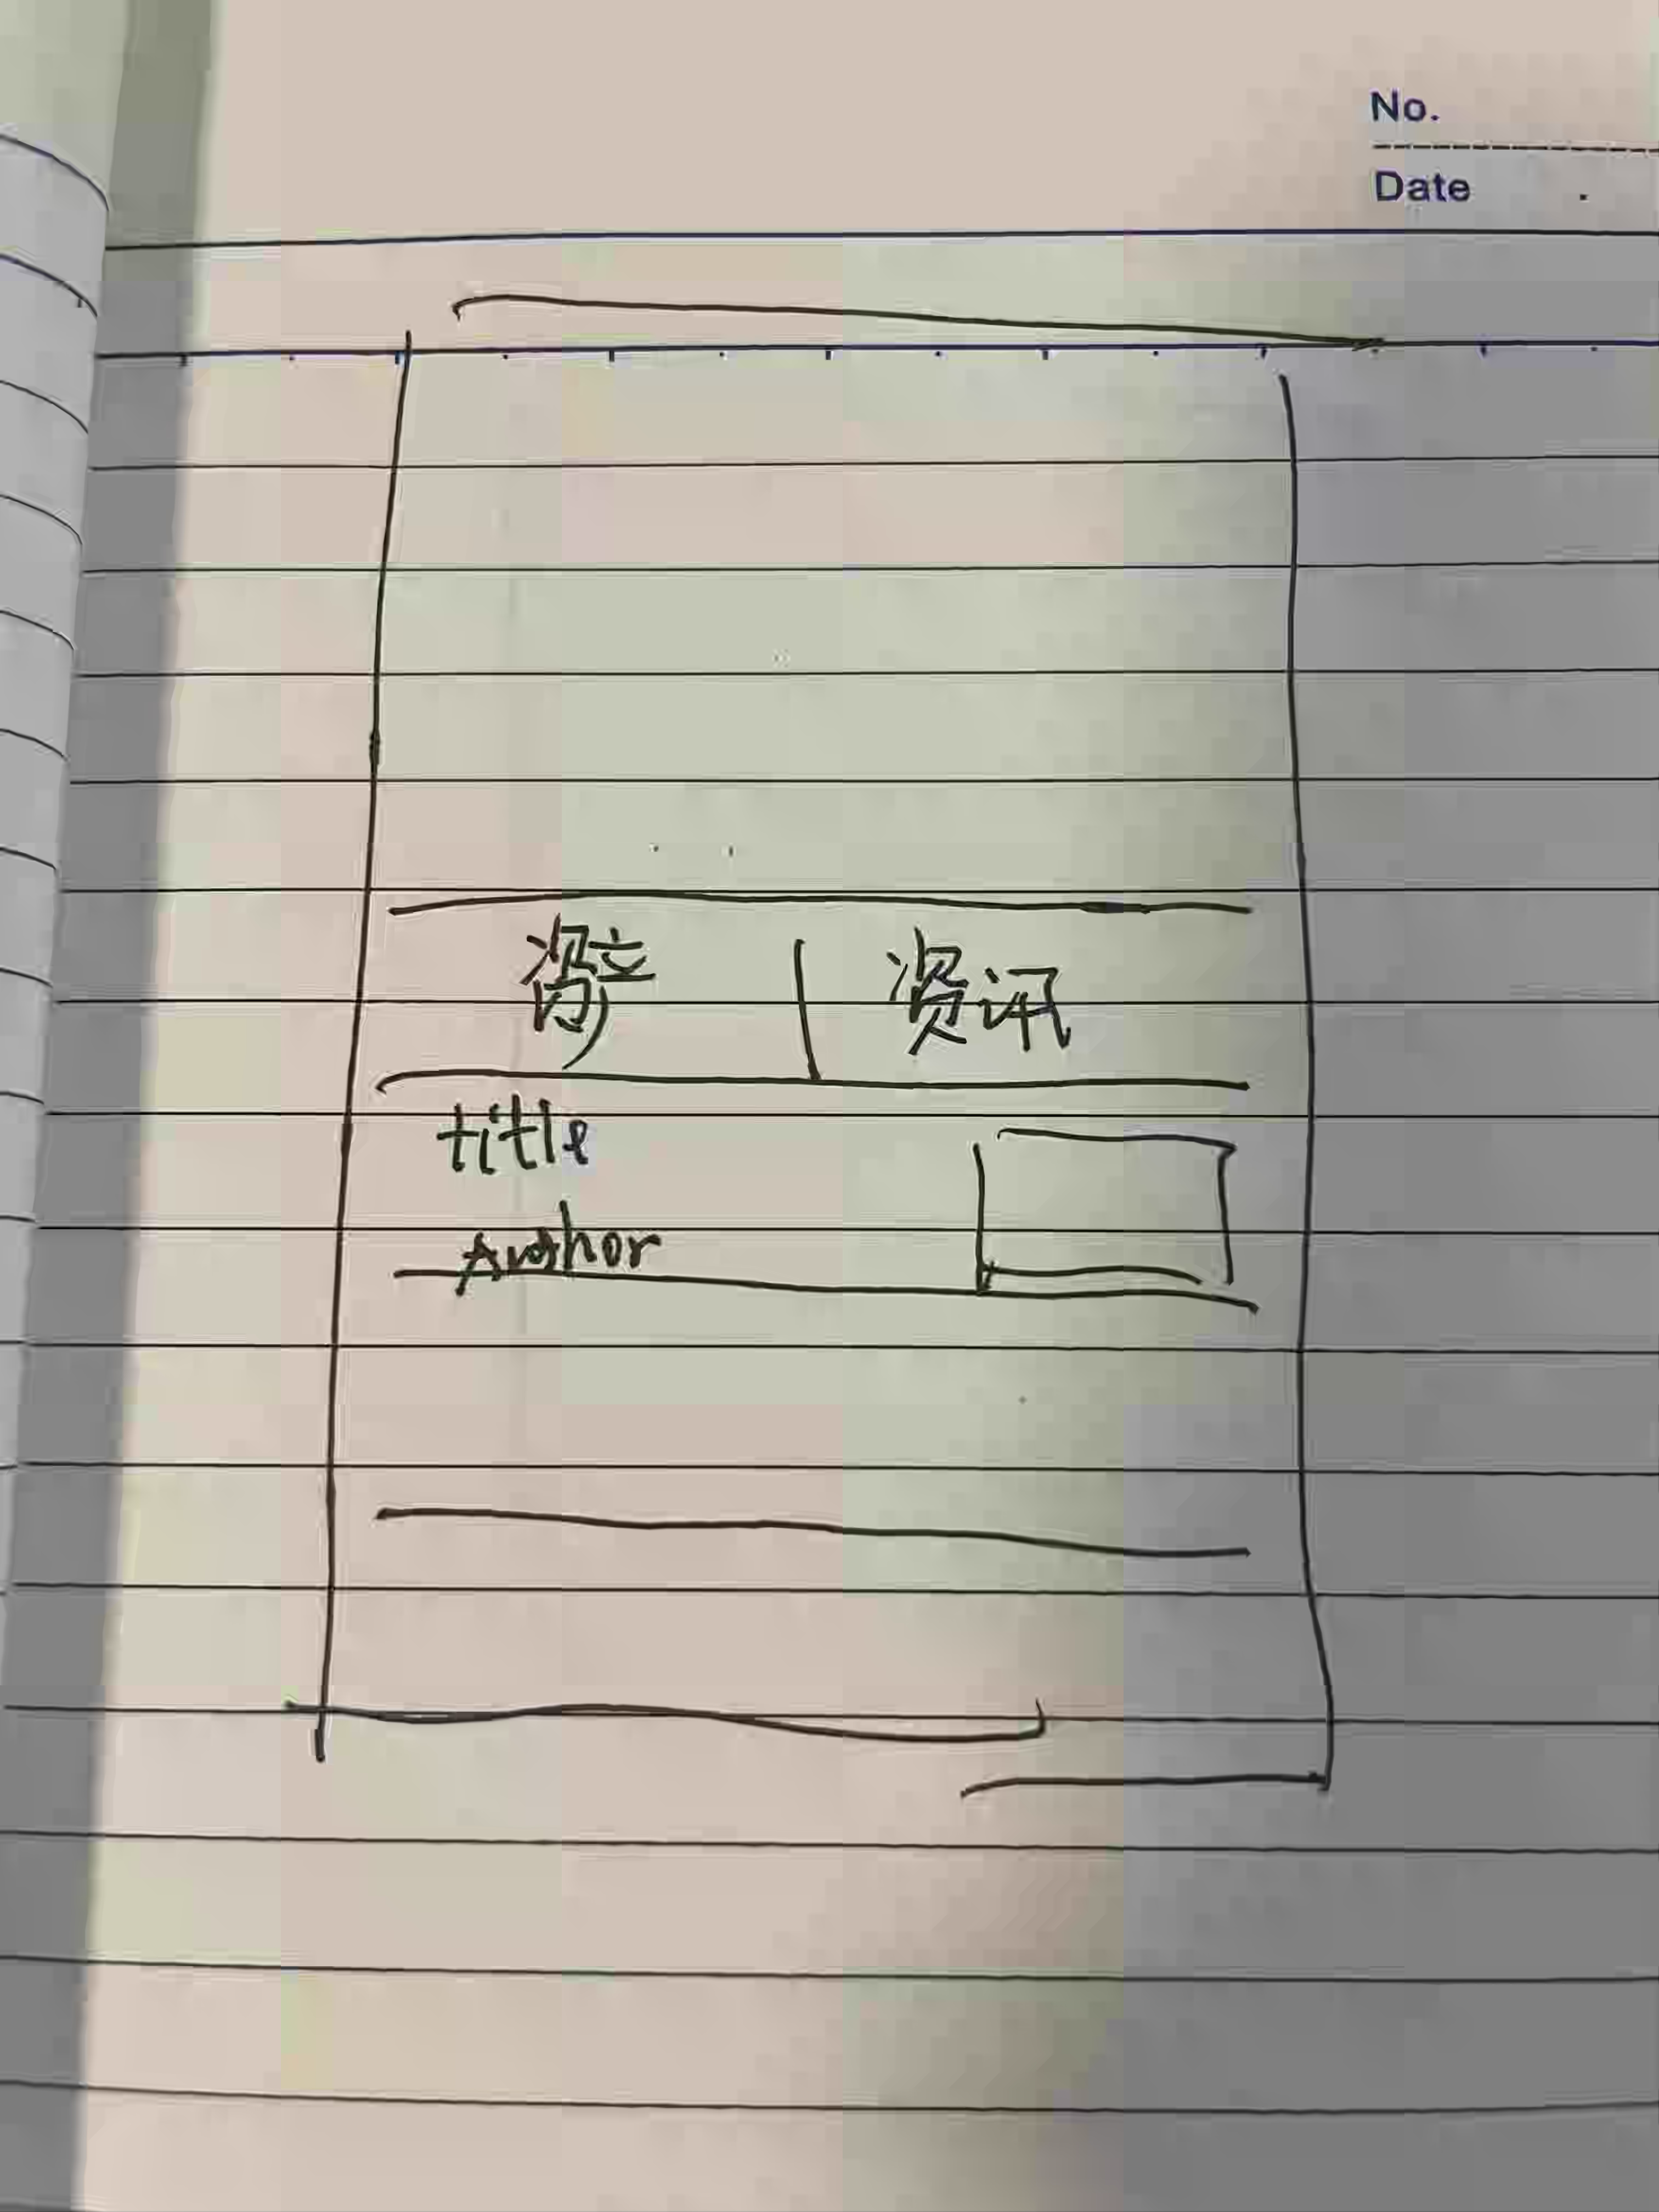 No.
Date
资产 | 资讯
title
Author